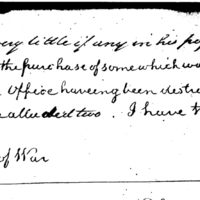 very little if any in his po
the purchase of some which wa
Office haveing been destro
alluded two. I have t
of War